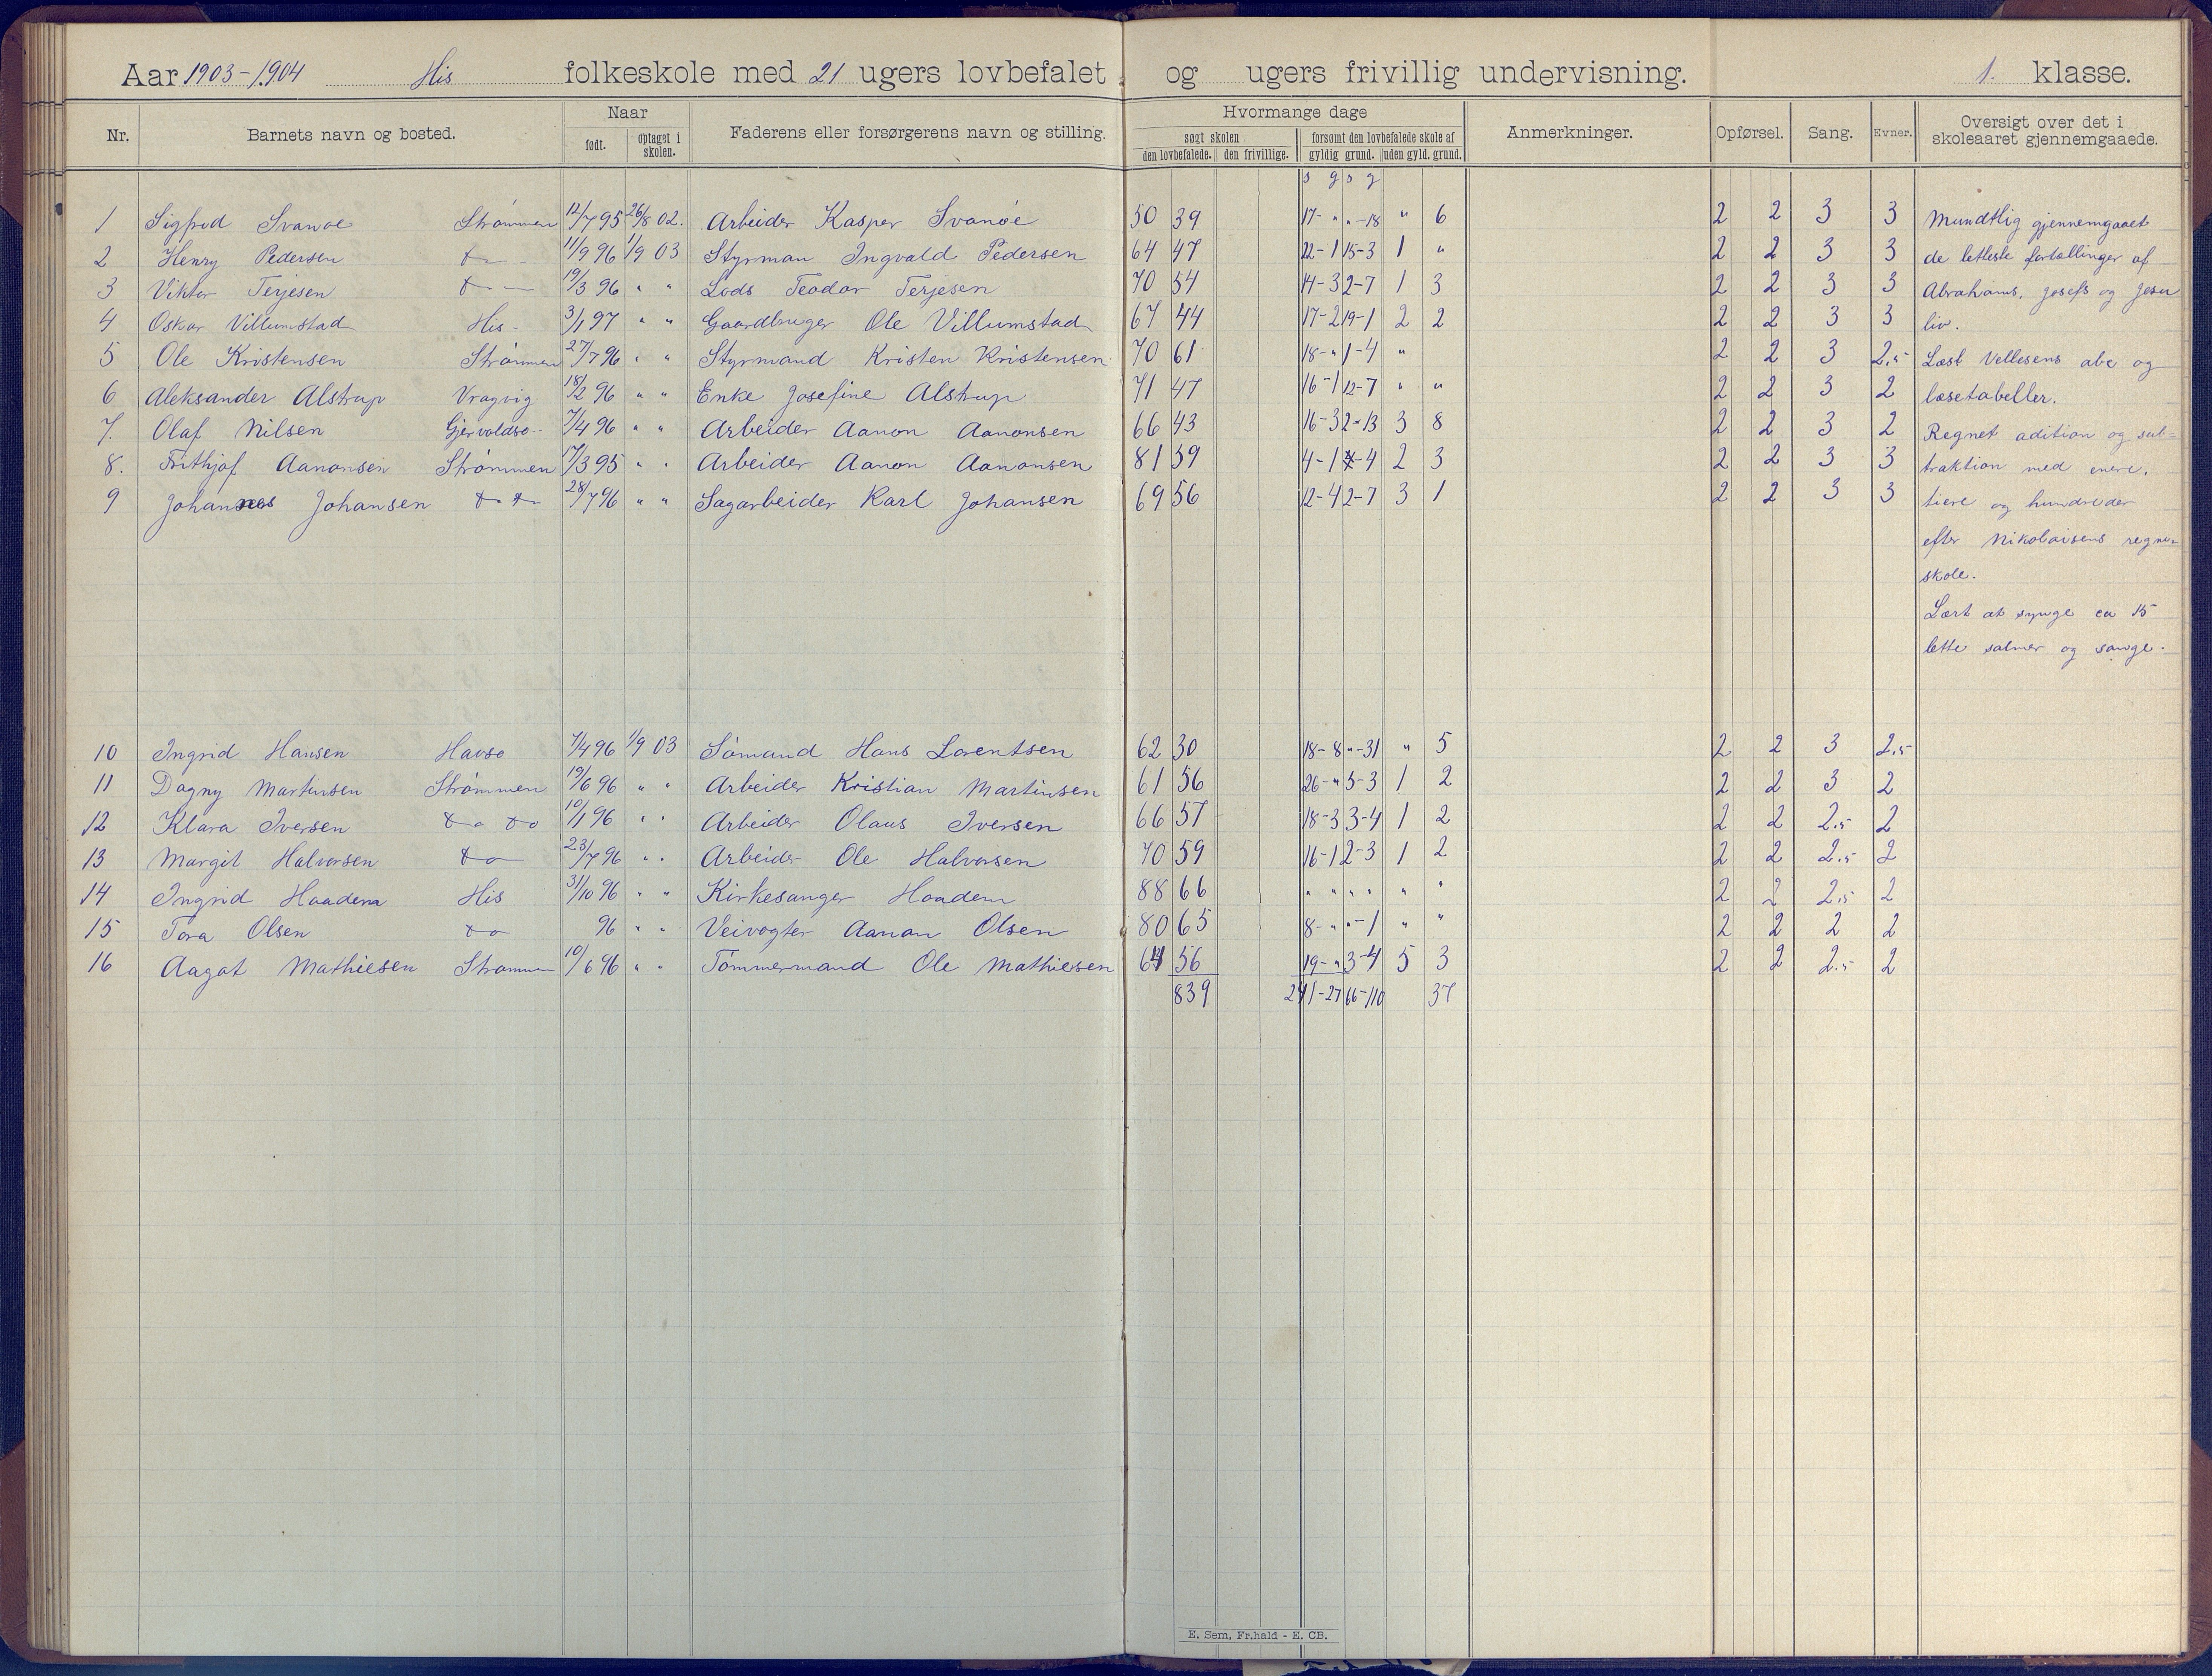 Aar 1903-1904 His folkeskole med 21 ugers lovbefalet og ugers frivillig undervisning. 1. klasse.
Nr. Barnets navn og bosted. Naar født. optaget i skolen. Faderens eller forsørgerens navn og stilling. Hvormange dage søgt skolen den lovbefalede. den frivillige. forsømt den lovbefalede skole af gyldig grund. uden gyld. grund. Anmerkninger. Opførsel. Sang. Evner. Oversigt over det i skoleaaret gjennemgaaede.
s g s g
1 Sigfred Svanøe Strømmen 12/7 95 26/8 02. Arbeider Kasper Svanøe 50 39 17- " "-18 " 6 2 2 3 3 Mundtlig gjennemgaaet
2 Henry Pedersen do 11/9 96 1/9 03 Styrman Ingvald Pedersen 64 47 22-1 15-3 1 " 2 2 3 3 de letteste fortællinger af
3 Viktor Terjesen do 19/3 96 " " Lods Teodor Terjesen 70 54 14-3 2-7 1 3 2 2 3 3 Abrahams, Josefs og Jesu
4 Oskar Villumstad His - 3/1 97 " " Gaardbruger Ole Villumstad 67 44 17-2 19-1 2 2 2 2 3 3 liv.
5 Ole Kristensen Strømmen 27/7 96 " " Styrmand Kristen Kristensen 70 61 18-" 1-4 " 2 2 3 2.5 Læst Vellesens abc og
6 Aleksander Alstrup Vragvig 18/2 96 " " Enke Josefine Alstrup 71 47 16-1 12-7 " " 2 2 3 2 læsetabeller.
7. Olaf Nilsen Gjervoldsø 7/4 96 " " Arbeider Aanon Aanonsen 66 43 16-3 2-13 3 8 2 2 3 2 Regnet adition og sub=
8. Frithjof Aanonsen Strømmen 17/3 95 " " Arbeider Aanon Aanonsen 81 59 4-1 -4 2 3 2 2 3 3 traktion med enere,
9 Johannes Johansen do do 28/7 96 " " Sagarbeider Karl Johansen 69 56 12-4 2-7 3 1 2 2 3 3 tiere og hundreder
efter Nikolaisens regne=
skole.
Lært at synge ca 15
lette salmer og sange.
10 Ingrid Hansen Havsø 7/4 96 1/9 03 Sømand Hans Lorentsen 62 30 18-8 "-31 " 5 2 2 3 2.5
11 Dagny Martinsen Strømmen 19/6 96 " " Arbeider Kristian Martinsen 61 56 26-" 5-3 1 2 2 2 3 2
12 Klara Iversen do do 10/1 96 " " Arbeider Olaus Iversen 66 57 18-3 3-4 1 2 2 2 2.5 2
13 Margit Halvorsen do 23/7 96 " " Arbeider Ole Halvorsen 70 59 16-1 2-3 1 2 2 2 2.5 2
14 Ingrid Haadem His 31/10 96 " " Kirkesanger Haadem 88 66 " " " " " " 2 2 2.5 2
15 Tora Olsen do 96 " " Veivogter Aanan Olsen 80 65 8-" "-1 " " 2 2 2 2
16 Aagot Mathiesen Strømmen 10/6 96 " " Tømmermand Ole Mathiesen 64 56 19-" 3-4 5 3 2 2 2.5 2
839 241-27 66-110 37
E. Sem, Fr.hald - E. CB.